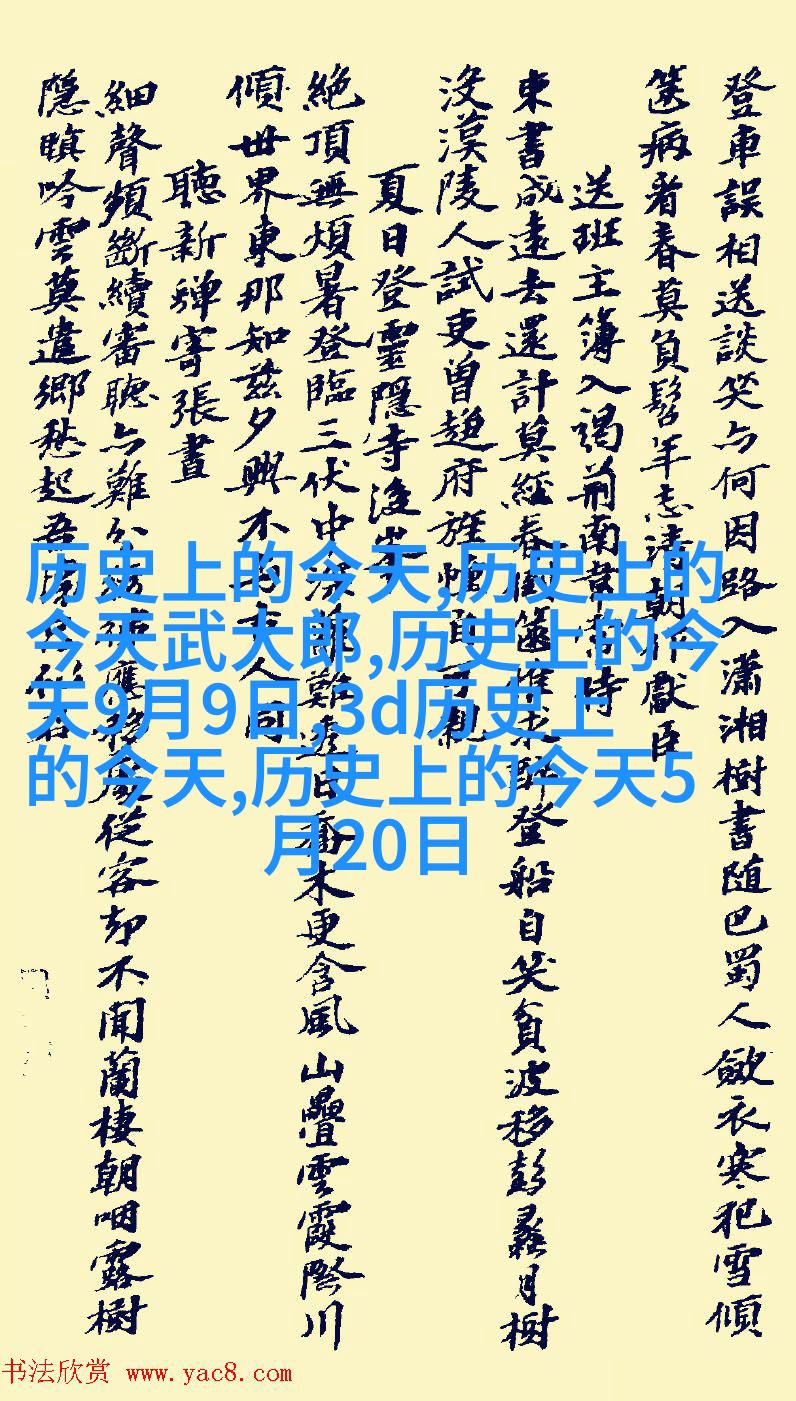 登車誤相送談笑与何因路入瀟湘樹書随巴蜀人歛衣寒犯雪傾
篋病看春莫負髫年志清朝作獻臣
送班主簿入謁荊南韋
東書成遠去還計莫經春
登船自笑貧波移彭蠡月樹
没漢陵人試吏曽趍府旌
夏日登靈隱寺後峯
絶頂無煩暑登臨三伏中深
喬木更含風山疊雲霞際川
傾世界東那知兹夕興不
人同
聽新蟬寄張晝
細聲頻斷續審聽亦難分
從容却不聞蘭棲朝咽露樹
隱暝吟雲莫遣鄉愁起吾
历史上的今天,历史上的
今天武大郎,历史上的今
天9月9日,3d历史上
的今天,历史上的今天5
月20日
书法欣赏 www.yac8.com